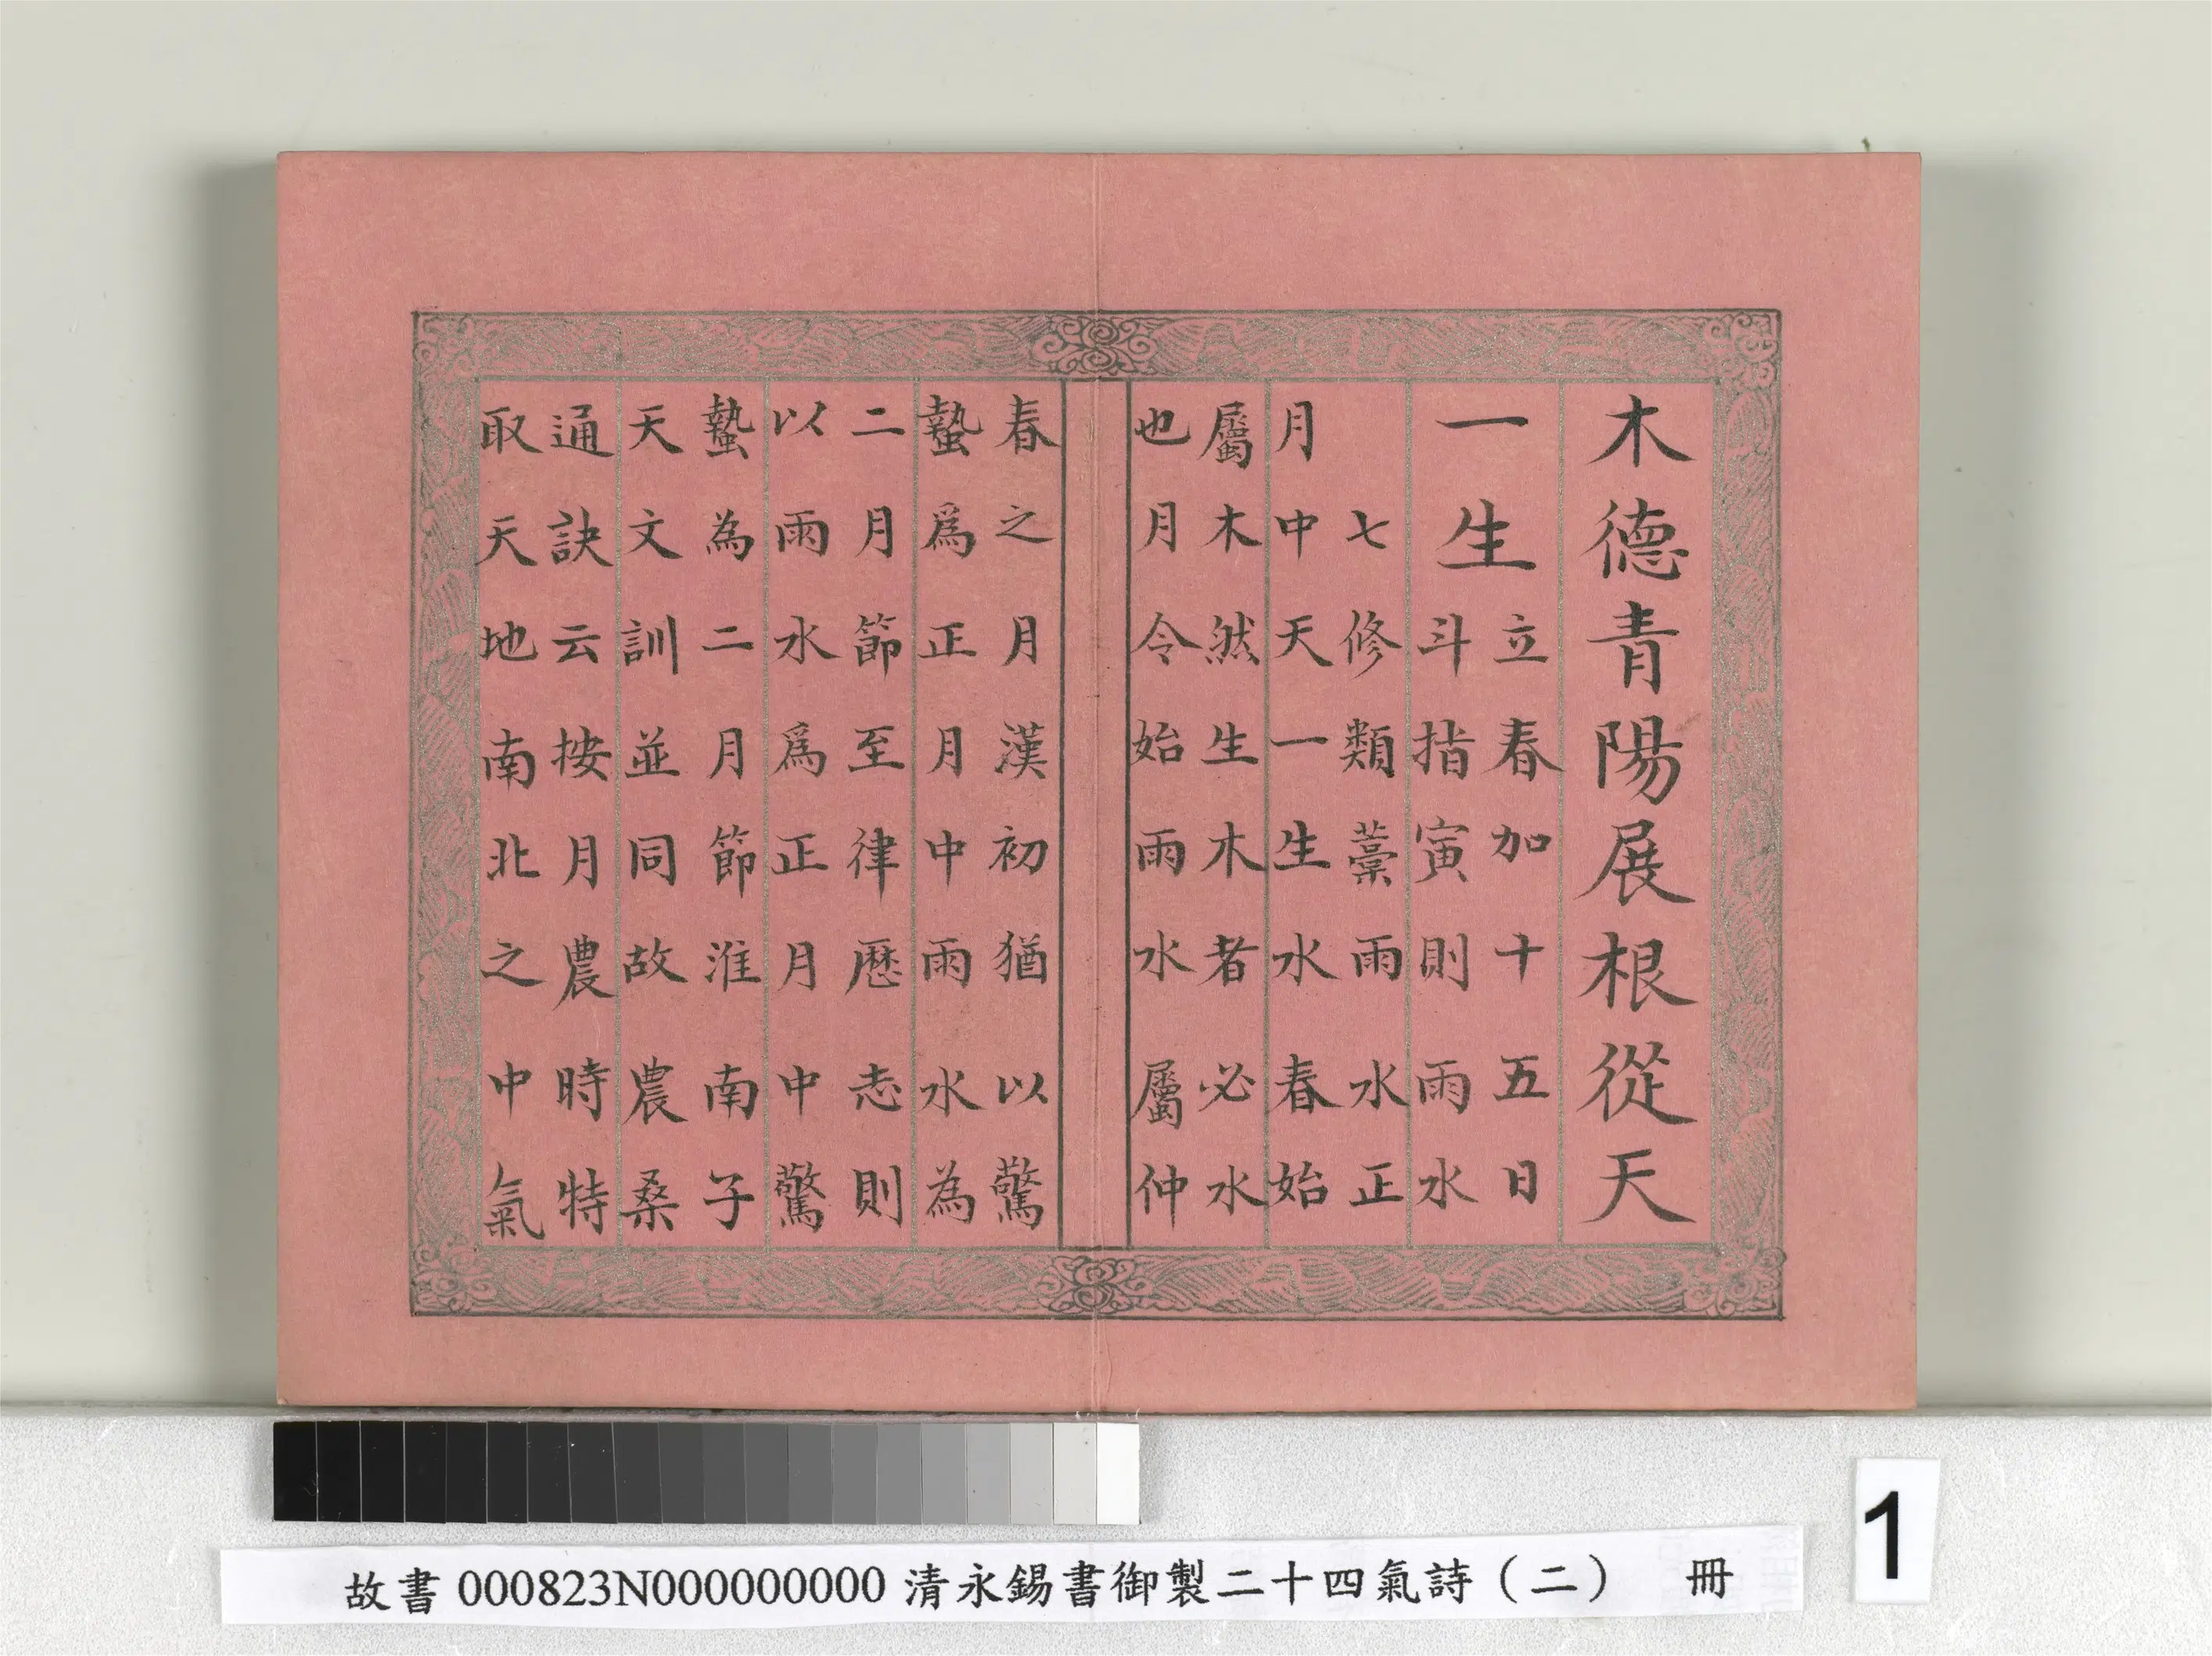 木德青陽展根從天
一生
立春加十五日
斗指寅則雨水
七修類藁雨水正
月中天一生水春始
屬木然生木者必水
也月令始雨水屬仲
春之月漢初猶以驚
蟄爲正月中雨水為
二月節至律厯志則
以雨水爲正月中驚
蟄為二月節淮南子
天文訓並同故農桑
通訣云按月農時特
取天地南北之中氣
故書 000823N000000000 清永錫書御製二十四氣詩（二） 冊
1